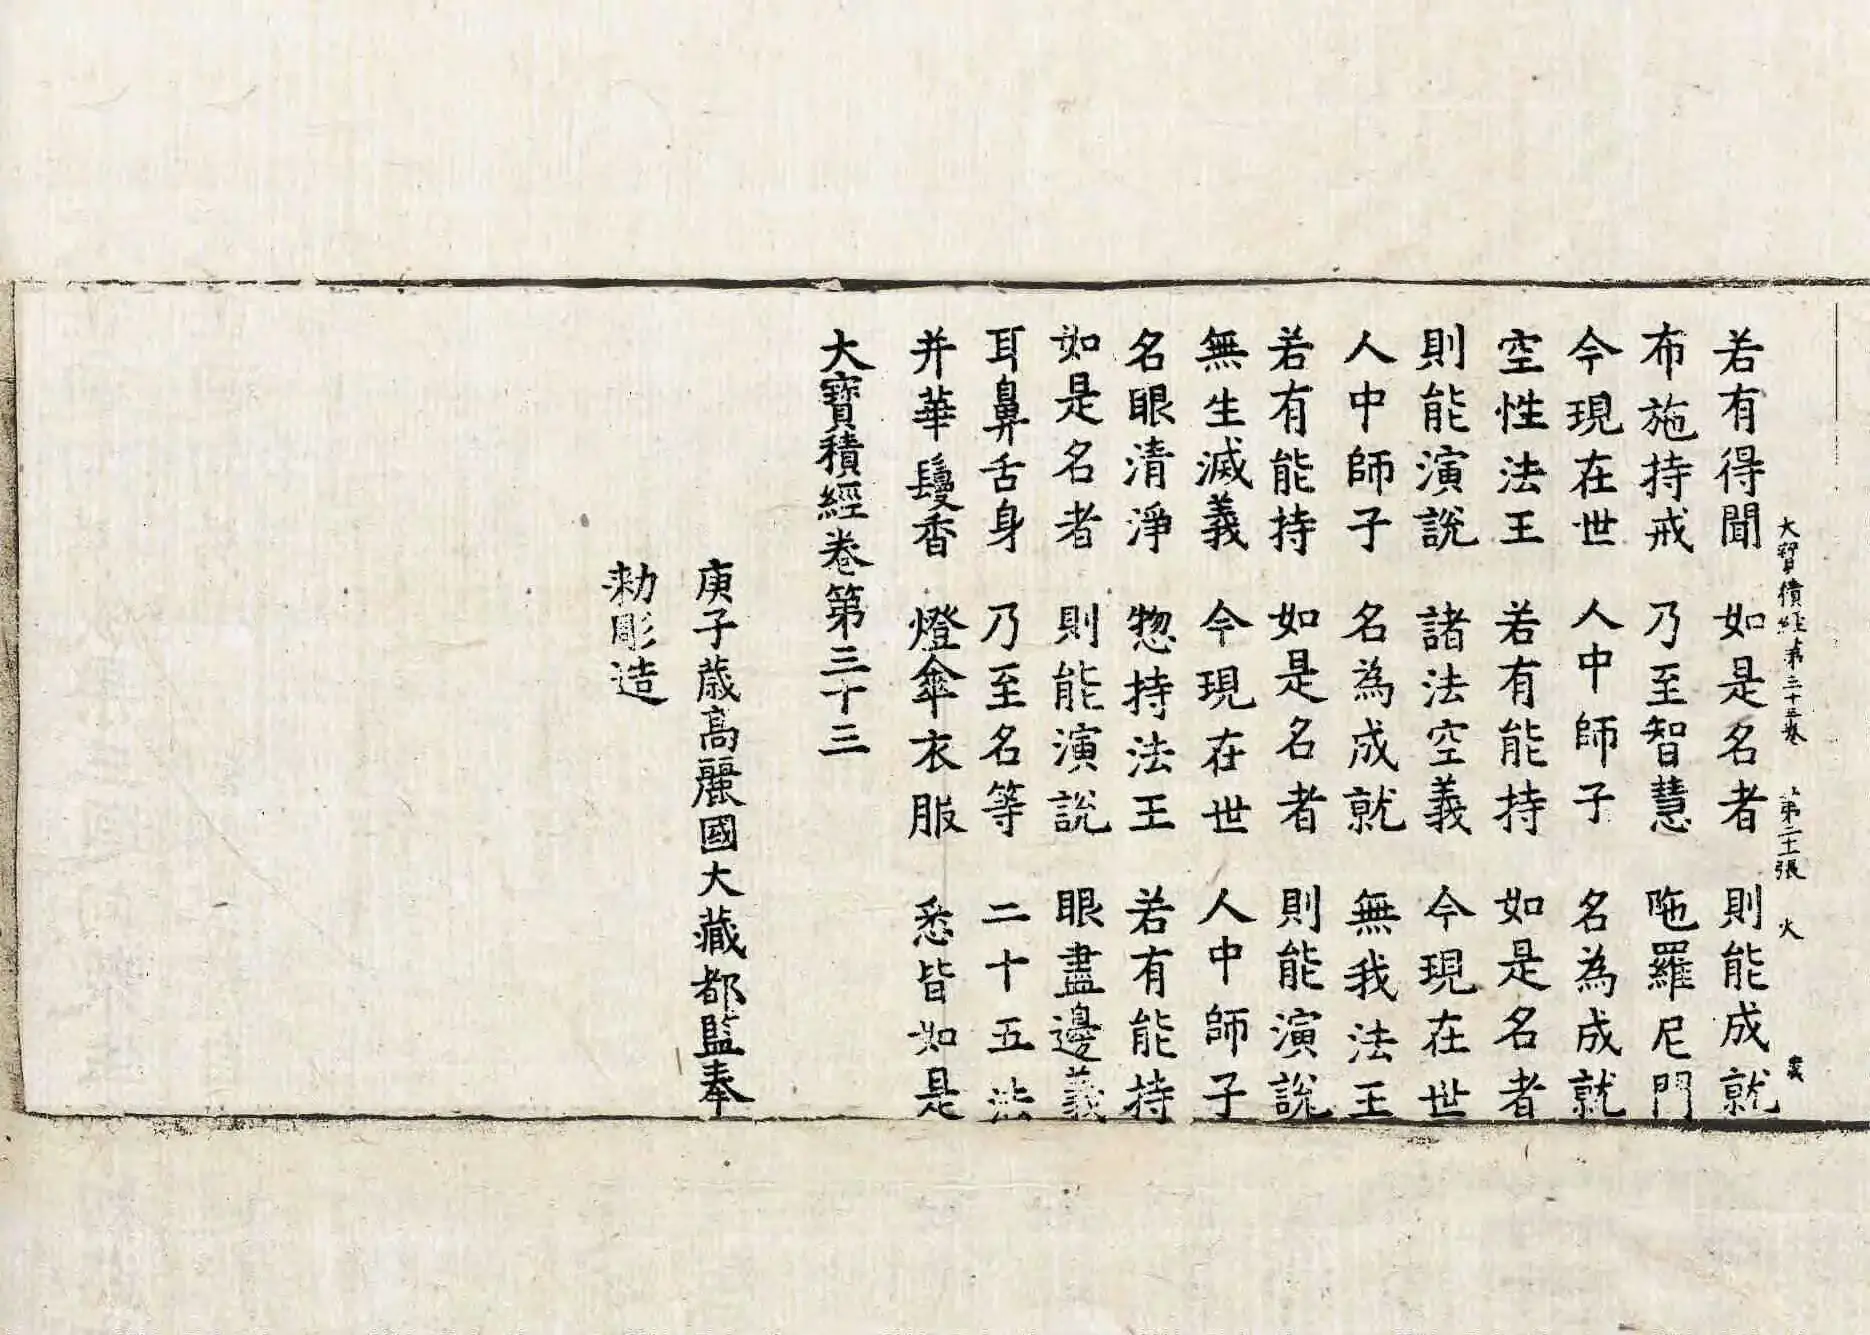 大寶積經第三十三卷 第二十張 火
若有得聞 如是名者 則能成就
布施持戒 乃至智慧 陁羅尼門
今現在世 人中師子 名為成就
空性法王 若有能持 如是名者
則能演說 諸法空義 今現在世
人中師子 名為成就 無我法王
若有能持 如是名者 則能演說
無生滅義 今現在世 人中師子
名眼清淨 惣持法王 若有能持
如是名者 則能演說 眼盡邊義
耳鼻舌身 乃至名等 二十五法
并華鬘香 燈傘衣服 悉皆如是
大寶積經卷第三十三
庚子歲高麗國大藏都監奉
勑彫造